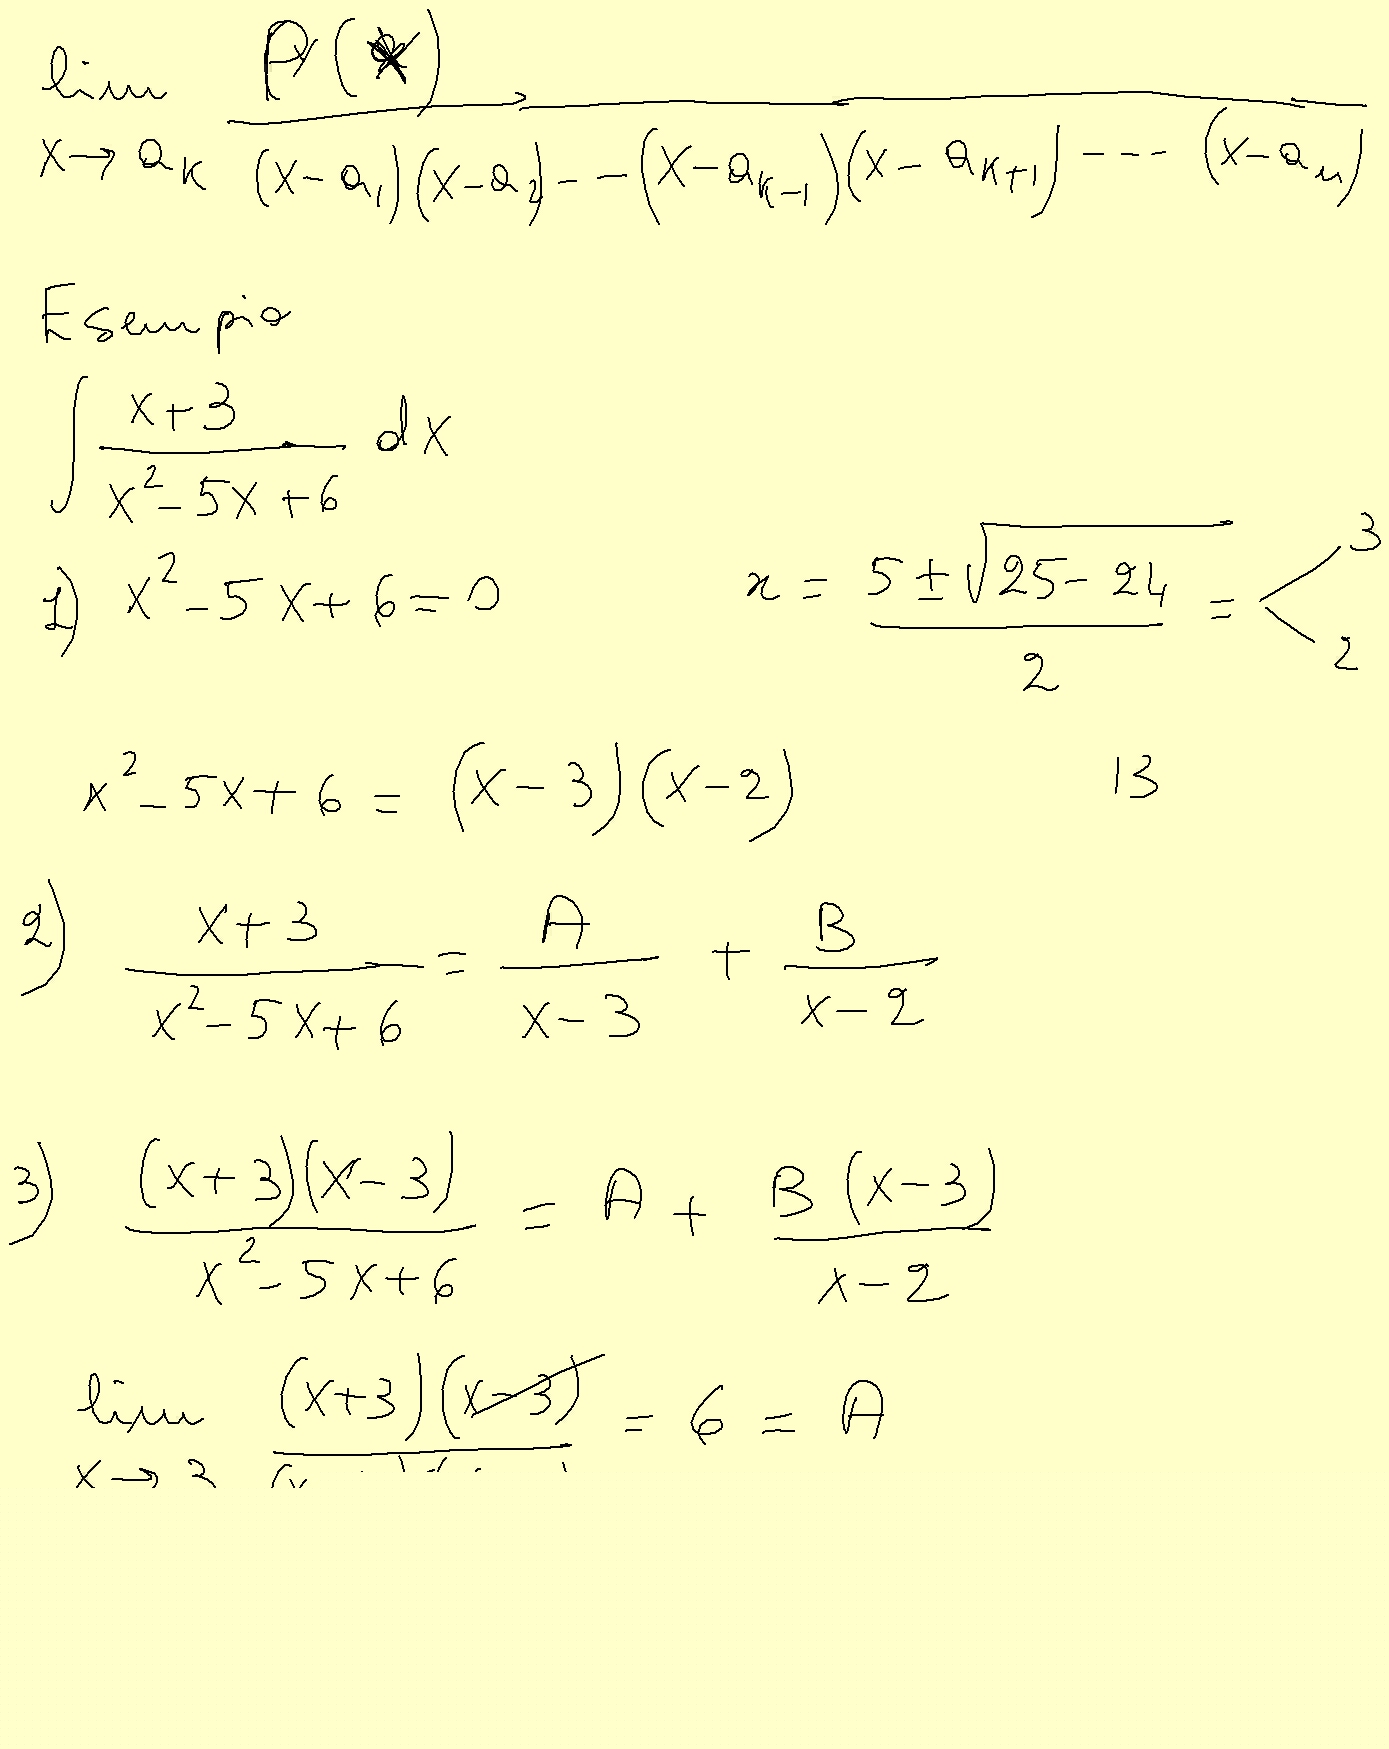 lim P(x) / (x-a₁)(x-a₂)---(x-aₖ₋₁)(x-aₖ₊₁)---(x-aₙ)
x→aₖ
Esempio
∫ (x+3)/(x²-5x+6) dx
1) x²-5x+6=0 x = (5±√(25-24))/2 = < 3 2
x²-5x+6 = (x-3)(x-2) 13
2) (x+3)/(x²-5x+6) = A/(x-3) + B/(x-2)
3) (x+3)(x-3)/(x²-5x+6) = A + B(x-3)/(x-2)
lim (x+3)(x-3) = 6 = A
x→3